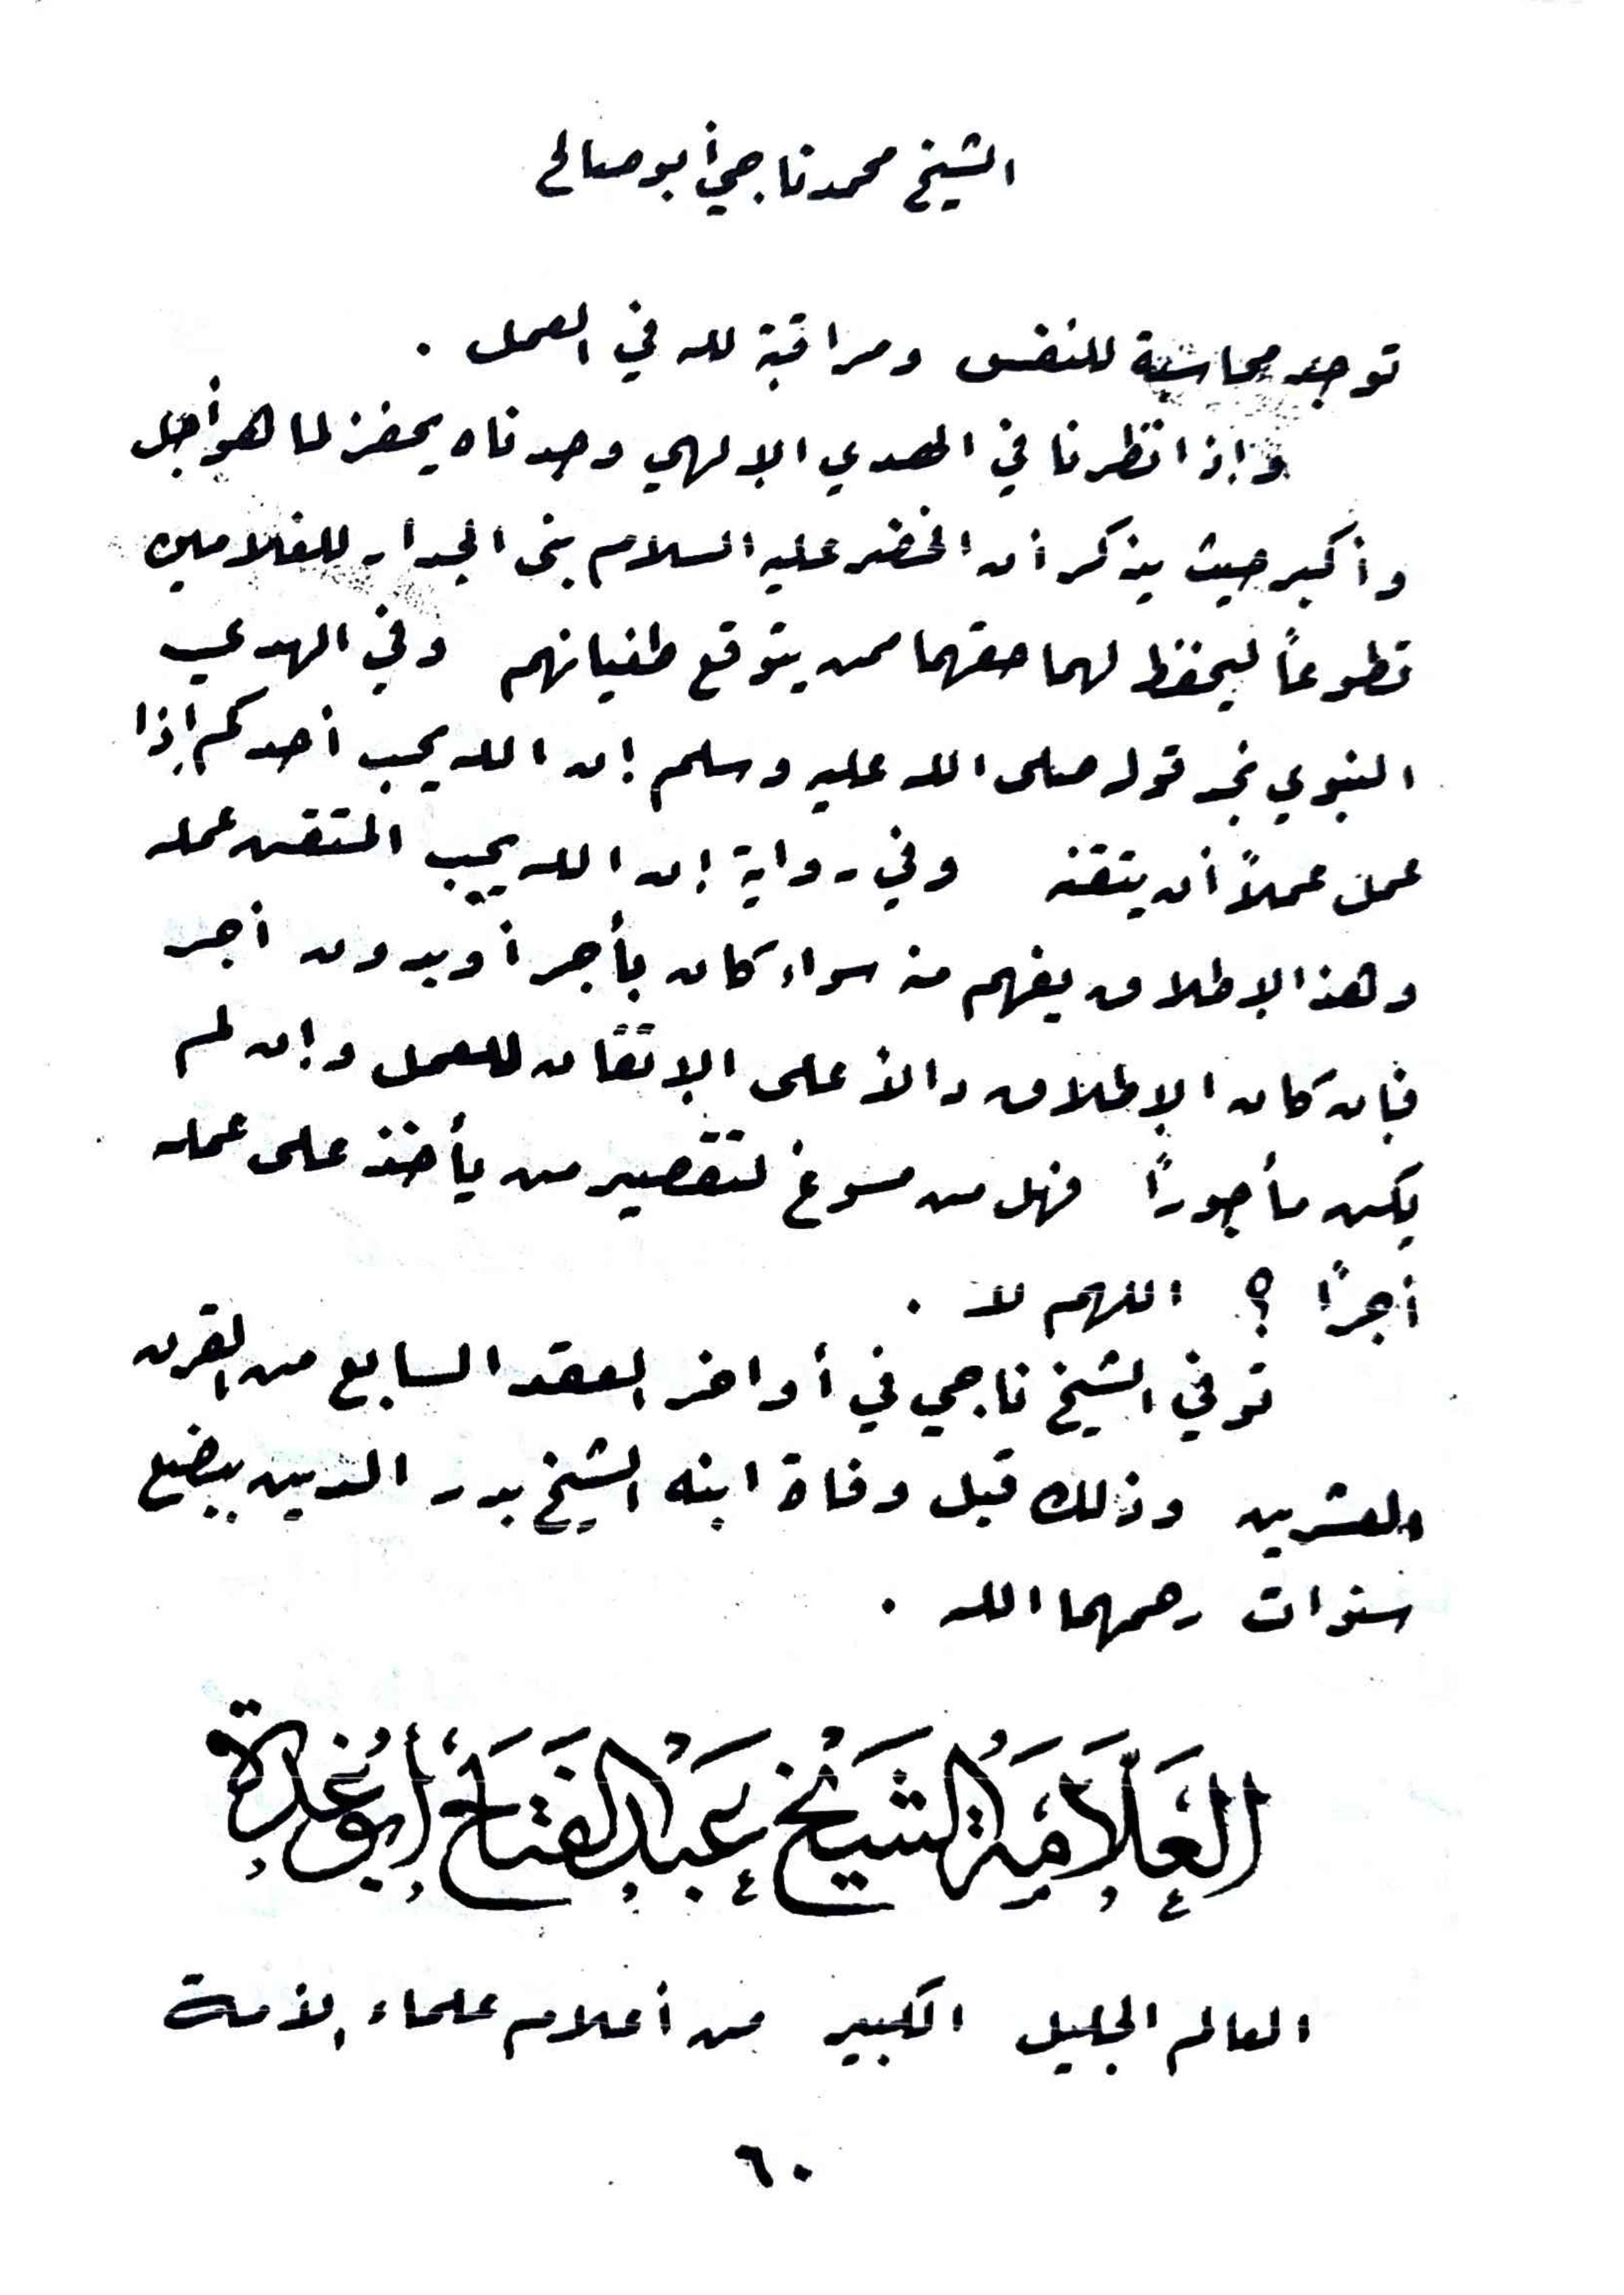 الشيخ محمد ناجي أبو صالح
توجد محاسبة للنفس ومراقبة لله في العمل .
وإذا نظرنا في الهدي الإلهي وجدناه يحفز لما هو أجل
وأكبر حيث يذكر أن الخضر عليه السلام بنى الجدار للغلامين
تطوعاً ليحفظ لهما حقهما ممن يتوقع طغيانهم وفي الهدي
النبوي نجد قوله صلى الله عليه وسلم إن الله يحب أحدكم إذا
عمل عملاً أن يتقنه وفي رواية إن الله يحب المتقن عمله
وهذا الإطلاق يفهم منه سواء كان بأجر أو بدون أجر
فإن كان الإطلاق دالاً على الإتقان للعمل وإن لم
يكن مأجوراً فهل من مسوغ لتقصير من يأخذ على عمله
أجراً ؟ اللهم لا .
توفي الشيخ ناجي في أواخر العقد السابع من القرن
العشرين وذلك قبل وفاة ابنه الشيخ بدر الدين ببضع
سنوات رحمهما الله .
العَلَّامَةُ الشَّيْخُ عَبْدُ الفَتَّاحِ أَبُو غُدَّة
العالم الجليل الكبير من أعلام علماء الأمة
٦٠